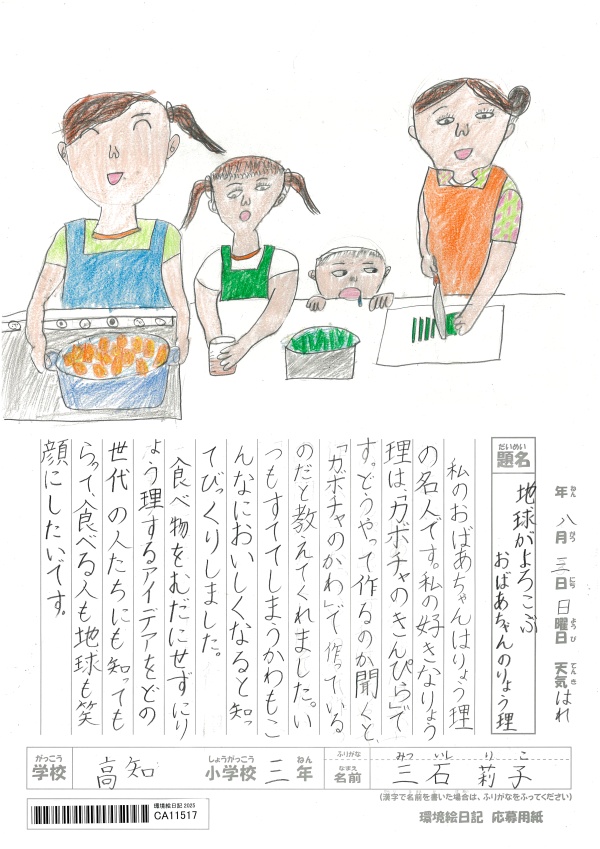 年 八月 三日 日曜日 天気 はれ
ねん がつ にち ようび てんき
だいめい
題名
地球がよろこぶ
おばあちゃんのりょう理
私のおばあちゃんはりょう理
の名人です。私の好きなりょう
理は、「カボチャのきんぴら」で
す。どうやって作るのか聞くと、
「カボチャのかわ」で作っている
のだと教えてくれました。い
つもすててしまうかわもこ
んなにおいしくなると知っ
てびっくりしました。
食べ物をむだにせずにり
ょう理するアイデアをどの
世代の人たちにも知っても
らって、食べる人も地球も笑
顔にしたいです。
がっこう
学校
高知
しょうがっこう
小学校
三
ねん
年
ふりがな
みついし りこ
なまえ
名前
三石 莉子
(漢字で名前を書いた場合は、ふりがなをふってください)
環境絵日記 2025
CA11517
環境絵日記 応募用紙